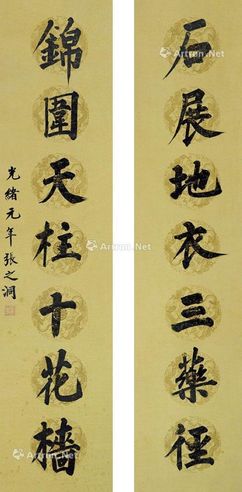 石展地衣三藥徑
錦圍天柱十花樯
光緒元年張之洞
Artron.Net
Artron.Net
Artron.Net
Artron.Net
Artron.Net
Artron.Net